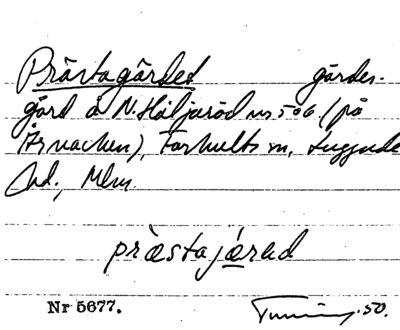 Prästagärdet gärdes-
gård å N. Häljaröd nr 5 o 6 (på
backen), Farhults sn, Luggude
hd., Mlm
præstajærəd
Nr 5677. .50.